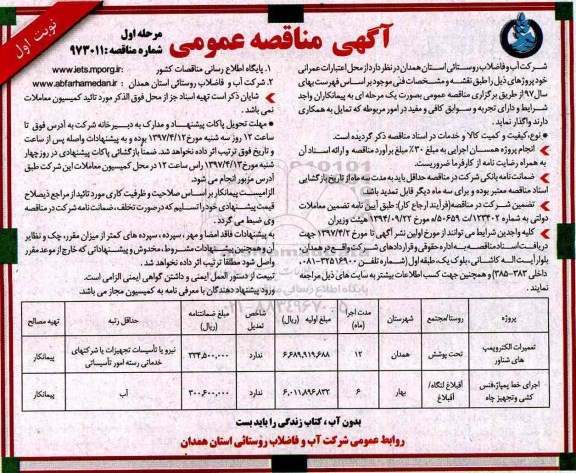 نوبت اول
آگهی مناقصه عمومی
مرحله اول
شماره مناقصه: ۹۷۳۰۱۱
شرکت آب و فاضلاب روستائی استان همدان در نظر دارد از محل اعتبارات عمرانی
خود پروژه های ذیل را طبق نقشه و مشخصات فنی موجود بر اساس فهرست بهای
سال ۹۷ از طریق برگزاری مناقصه عمومی بصورت یک مرحله ای به پیمانکاران واجد
شرایط و دارای تجربه و سوابق کافی و مفید در امور مربوطه که تمایل به همکاری
دارند واگذار نماید.
• نوع، کیفیت و کمیت کالا و خدمات در اسناد مناقصه ذکر گردیده است.
• انجام پروژه همسان اجرایی به مبلغ ۳۰٪ مبلغ برآورد مناقصه و ارائه اسناد آن
به همراه رضایت نامه از کارفرما ضروریست.
• ضمانت نامه بانکی شرکت در مناقصه حداقل باید به مدت سه ماه از تاریخ بازگشایی
اسناد مناقصه معتبر بوده و برای سه ماه دیگر قابل تمدید باشد.
• تضمین شرکت در مناقصه (فرآیند ارجاع کار): طبق آیین نامه تضمین معاملات
دولتی به شماره ۱۲۳۴۰۲/ت ۵۰۶۵۹ه مورخ ۱۳۹۴/۰۹/۲۲ هیئت وزیران
• کلیه واجدین شرایط می توانند از مورخ اولین نشر آگهی تا مورخ ۱۳۹۷/۴/۲ جهت
دریافت اسناد مناقصه به اداره حقوقی و قراردادهای شرکت واقع در همدان،
بلوار آیت اله کاشانی، بلوک یک، طبقه اول (شماره تلفن: ۳۲۵۱۶۹۰۰-۰۸۱
داخلی ۳۸۳-۳۸۵) و همچنین جهت کسب اطلاعات بیشتر به سایت های ذیل مراجعه
نمایند.
۱. پایگاه اطلاع رسانی مناقصات کشور: www.iets.mporg.ir
۲. شرکت آب و فاضلاب روستائی استان همدان: www.abfarhamedan.ir
• شایان ذکر است تهیه اسناد جز از محل فوق الذکر مورد تائید کمیسیون معاملات
نمی باشد.
• مهلت تحویل پاکات پیشنهاد و مدارک به دبیرخانه شرکت به آدرس فوق تا
ساعت ۱۲ روز سه شنبه مورخ ۱۳۹۷/۴/۱۲ بوده و به پیشنهادات واصله پس از ساعت
و تاریخ فوق ترتیب اثر داده نخواهد شد. ضمناً بازگشائی پاکات پیشنهادی در روز چهار
شنبه مورخ ۱۳۹۷/۴/۱۳ راس ساعت ۱۲ در محل کمیسیون معاملات این شرکت طبق
آدرس مزبور انجام می شود.
الزامیست پیمانکار بر اساس صلاحیت و ظرفیت کاری مورد تائید از مراجع ذیصلاح
قیمت پیشنهادی خود را تسلیم که در صورت تخلف، ضمانت نامه شرکت در مناقصه
وی ضبط می گردد.
به پیشنهادات فاقد امضا و مهر، سپرده، سپرده های کمتر از میزان مقرر، چک و نظایر
آن و همچنین پیشنهادات مشروط، مخدوش و پیشنهاداتی که خارج از موعد مقرر
واصل شود مطلقاً ترتیب اثر داده نخواهد شد.
تبعیت از دستور العمل ایمنی و داشتن گواهی ایمنی الزامی است.
ورود پیشنهاد دهندگان با معرفی نامه به کمیسیون مجاز می باشد.
پروژه روستا/مجتمع شهرستان مدت اجرا (ماه) مبلغ اولیه (ریال) شاخص تعدیل مبلغ ضمانتنامه (ریال) حداقل رتبه تهیه مصالح
تعمیرات الکتروپمپ های شناور تحت پوشش همدان ۱۲ ۶,۶۸۹,۹۱۹,۶۸۸ ندارد ۳۳۴,۵۰۰,۰۰۰ نیرو یا تأسیسات تجهیزات یا شرکتهای خدماتی رسته امور تأسیساتی پیمانکار
اجرای خط پمپاژ، فنس کشی و تجهیز چاه آقبلاغ لتگاه/آقبلاغ بهار ۶ ۶,۰۱۱,۸۹۶,۸۳۲ ندارد ۳۰۰,۶۰۰,۰۰۰ آب پیمانکار
بدون آب، کتاب زندگی را باید بست
روابط عمومی شرکت آب و فاضلاب روستائی استان همدان